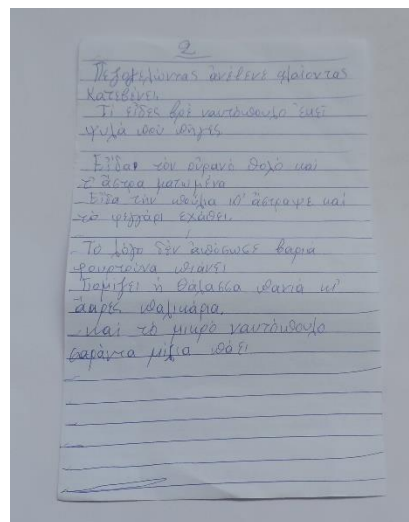 2
Πεζογελώντας ἀνέβενε κλαίοντας
Κατεβένει
Τί εἶδες βρέ ναυτόπουλο ἐκεῖ
ψυλά πού πῆγες
Εἶδα τὸν οὐρανό θολό καί
τ' ἄστρα ματωμένα
Εἶδα τήν μπόλια π' ἄστραψε καί
τό φεγγάρι εχάθει.
Το λόγο δέν ἀπόσωσε βαριά
φουρτούνα πιάνει
Γιομίζει ἡ θάλασσα πανιά κι'
ἄκρες παλικάρια.
καί τό μικρό ναυτόπουλο
σαράντα μίλια πάει